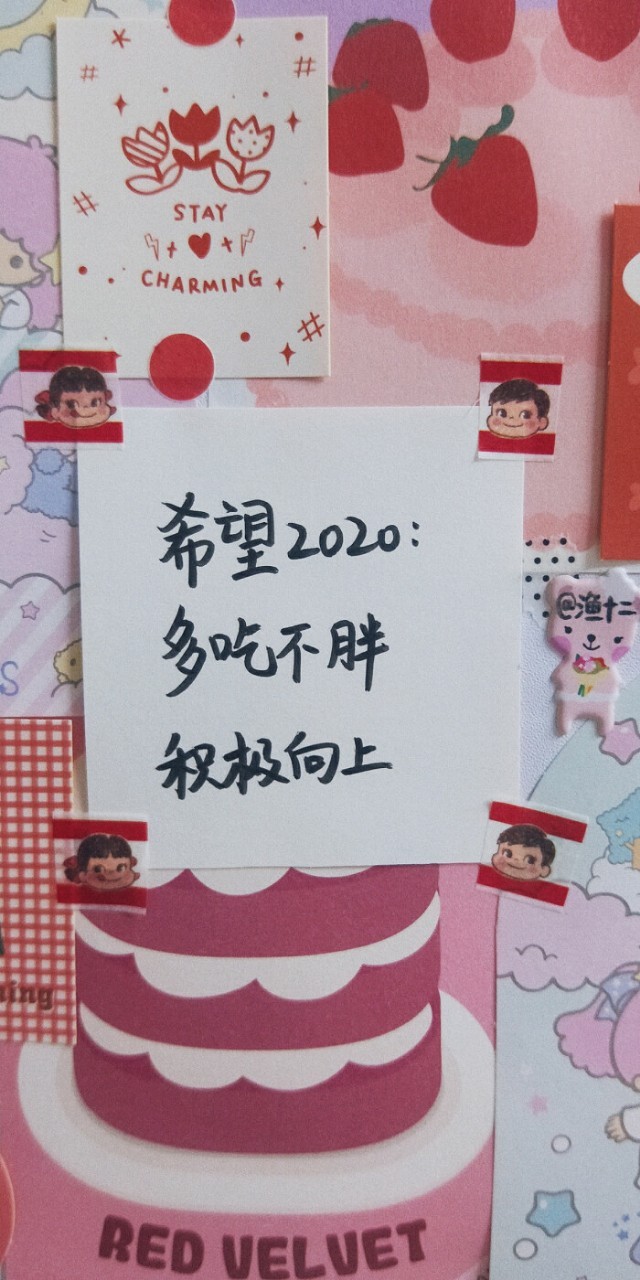 STAY
CHARMING
希望2020:
多吃不胖
积极向上
@渔十二
S
ning
RED VELVET